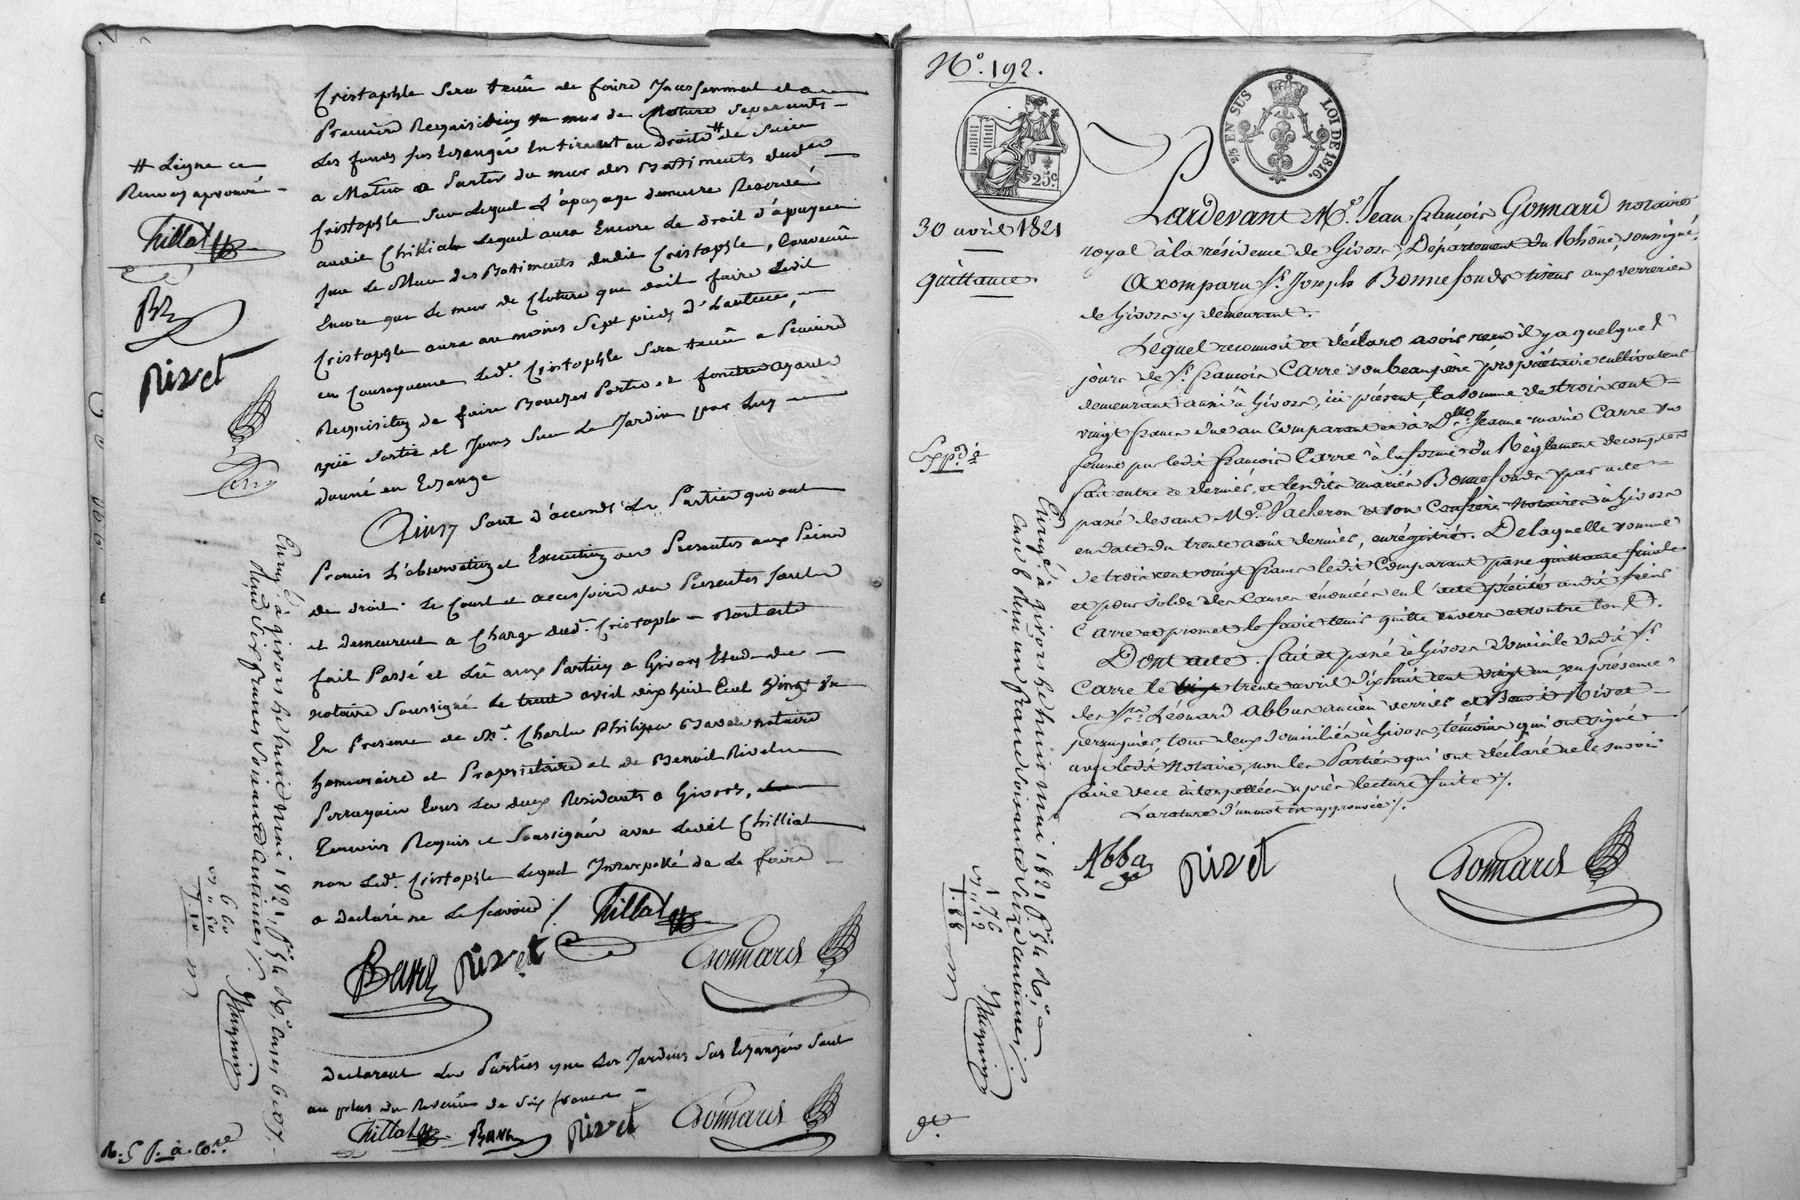 Cristophle sera tenû de faire Incessamment et a
Premiere Requisition un mur de Cloture separants
Les fonds sus Echangés En tirant en droite # de Suire
a Matia a Partir du mur des Battiments dudit
Cristophle sur Lequel L'apuyage demeure Reservé
audit Chilliat Lequel aura Encore Le droit d'apuyer
sur Le Mur des Batiments dudit Cristophle, Convenû
Encore que Le mur de Cloture que doit faire Ledit
Cristophle aura au moins Sept pieds d'hauteur,
en Consequence Led.t Cristophle Sera tenû a Premiere
Requisition de faire Boucher Portes et fenetres ayant
vüe Sortie et Jours Sur Le Jardin par Luy
donné en Echange
# Ligne ce
Renvoy aprouvé
Chillat
Rivet
Ainsy Sont d'accords Les Parties qui ont
Promis L'observation et Execution des Presentes aux Peines
de droit. Le Court et accessoires des Presentes sont
et demeurent a Charge dud.t Cristophle dont acte
fait Passé et Lû aux Parties a Givors Etude du
notaire Soussigné Le trente avril dix huit Cent Vingt un
En Presence de Mr. Charles Philippe Bavet notaire
honnoraire et Propriétaire et de Benoit Rivet
Perruquier tous Les deux Residents a Givors,
Temoins Requis et Soussignés avec Ledit Chilliat
non Led.t Cristophle Lequel Interpellé de Le faire
a declaré ne Le Scavoir /. Chillat
Rivet Gonnard
Declarent Les Parties que Les Jardins Sus Echangés Sont
au plus du Revenu de Six francs
Chillat Rivet Gonnard
Enreg.é à givors le huit mai 1821, f.o 54 R.o Cases 6 et 7.
Reçu six francs soixante centimes /.
6 60
" 60
N.o 192.
25 EN SUS LOI DE 1816.
25c
30 avril 1821
quittance
Expd.é
Pardevant M.e Jean françois Gonnard notaire
royal à la résidence de Givors, Département du Rhône, soussigné,
A comparu S.r Joseph Bonnefonds tiseur aux verreries
de Givors y demeurant.
Lequel reconnoit et déclare avoir reçu il y a quelques
jours de S.r françois Carre son beaupère propriétaire cultivateur
demeurant aussi à Givors, ici présent, la somme de trois cent
vingt francs due au Comparant et à D.lle Jeanne marie Carre sa
femme par ledit françois Carre à la forme du Règlement de comptes
fait entre ce dernier, et lesdits mariés Bonnefonds, par acte
passé devant M.e Vacheron et son Confrère Notaires à Givors
en date du trente août dernier, enrégistré. De laquelle somme
de trois cent vingt francs ledit Comparant passe quittance finale
et pour solde des Causes énoncées en l'acte précité audit friens
Carre et promet le faire tenir quitte envers et contre tous.
Dont acte. fait et passé à Givors domicile dudit S.r
Carre le trente avril dix huit cent vingt un, en présence
des S.rs Léonard Abba ancien verrier et Benoit Rivet
perruquier, tous deux domiciliés à Givors, témoins qui ont signé
avec ledit Notaire, non les Parties qui ont déclaré ne le savoir
faire de ce interpellées après lecture faite /.
La rature d'un mot est approuvée /.
Abba Rivet Gonnard
Enreg.é à givors le huit mai 1821, f.o 54 R.o
Case 6 Reçu un franc soixante seize centimes /.
1 76
" 12
1.88